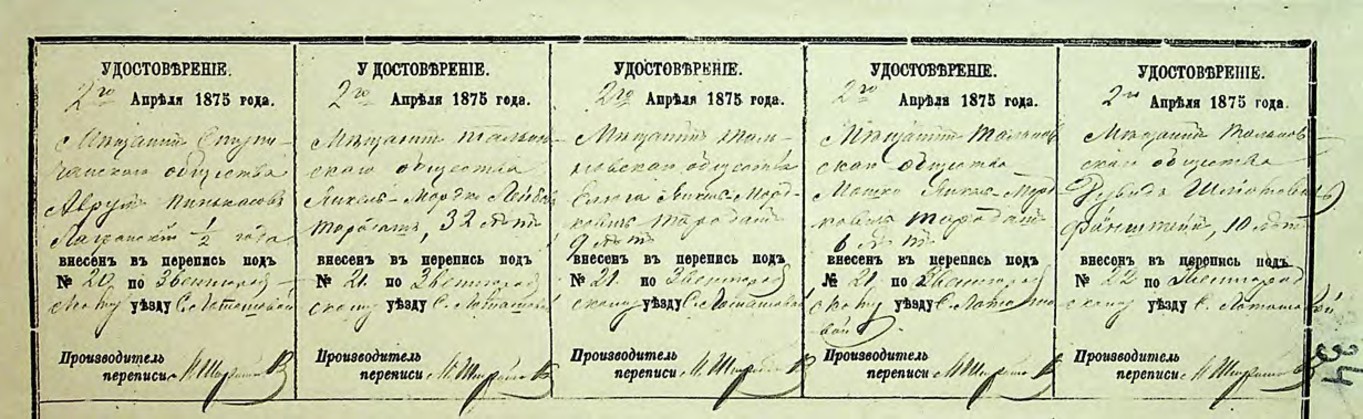 УДОСТОВѢРЕНІЕ.
2го Апрѣля 1875 года.
Мѣщанинъ
общества
Аврумъ Пинькасовъ
1/2 года
внесенъ въ перепись подъ
№ 20 по Звенигород-
скому уѣзду С. Лоташевой
Производитель
переписи
У ДОСТОВѢРЕНІЕ.
2го Апрѣля 1875 года.
Мѣщанинъ Тальнов-
скаго общества
Янкель-Мордко Лейбовъ
Тараданъ, 32 лѣтъ
внесенъ въ перепись подъ
№ 21 по Звенигород-
скому уѣзду С. Лоташевой
Производитель
переписи
УДОСТОВѢРЕНІЕ.
2го Апрѣля 1875 года.
Мѣщанинъ Таль-
новскаго общества
Янкель-Морд-
ковичъ Тараданъ
9 лѣтъ
внесенъ въ перепись подъ
№ 21 по Звенигород-
скому уѣзду С. Лоташевой
Производитель
переписи
УДОСТОВѢРЕНІЕ.
2го Апрѣля 1875 года.
Мѣщанинъ Тальнов-
скаго общества
Мошко Янкель-Морд-
ковичъ Тараданъ
6 лѣтъ
внесенъ въ перепись подъ
№ 21 по Звенигород-
скому уѣзду С. Лоташе-
вой.
Производитель
переписи
УДОСТОВѢРЕНІЕ.
2го Апрѣля 1875 года.
Мѣщанинъ Тальнов-
скаго общества
Файнштейнъ, 10 лѣтъ
внесенъ въ перепись подъ
№ 22 по Звенигород-
скому уѣзду С. Лоташевой
Производитель
переписи
34